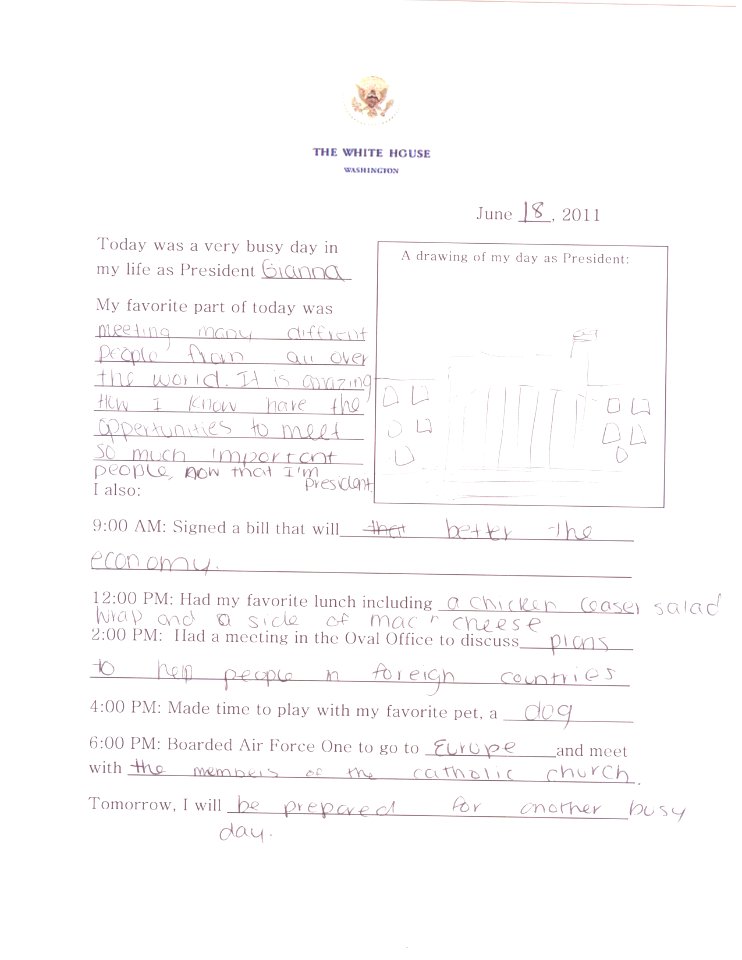 THE WHITE HOUSE
WASHINGTON
June 18, 2011
Today was a very busy day in
my life as President Gianna
A drawing of my day as President:
My favorite part of today was
meeting many diffrent
people from all over
the world. It is amazing
How I know have the
oppertunities to meet
so much important
people, now that I'm
president
I also:
9:00 AM: Signed a bill that will that better the
economy.
12:00 PM: Had my favorite lunch including a chicken ceaser salad
wrap and a side of mac n cheese
2:00 PM: Had a meeting in the Oval Office to discuss plans
to help people in foreign countries
4:00 PM: Made time to play with my favorite pet, a dog
6:00 PM: Boarded Air Force One to go to Europe and meet
with the members of the catholic church.
Tomorrow, I will be prepared for another busy
day.